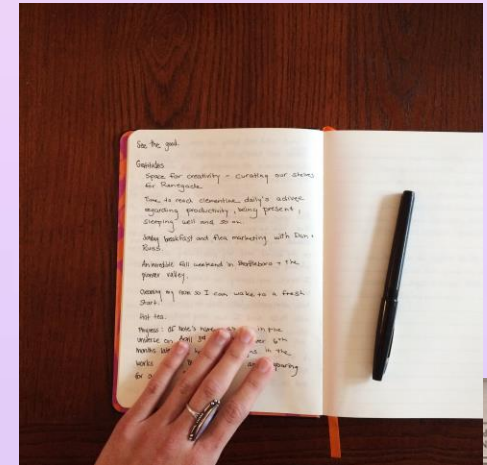 See the good.
Gratitudes
Space for creativity - curating our shelves
for Renegade.
Time to read clementine daily's advice
regarding productivity, being present,
sleeping well and so on.
Sunday breakfast and flea marketing with Dan +
Ross.
An incredible fall weekend in Brattleboro + the
pioneer valley.
Cleaning my room so I can wake to a fresh
start.
Hot tea.
Progress: Of Note's home in the
universe on
months
works
for